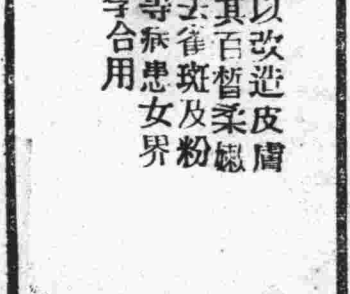 以改造皮膚
其百皙柔嫩
去雀斑及粉
等病患女界
合用